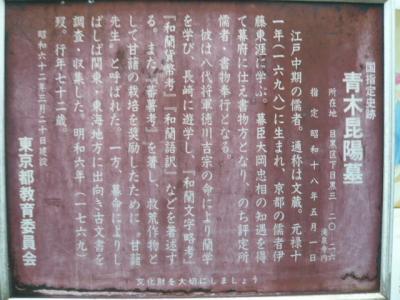 国指定史跡
青木昆陽墓
所在地 目黒区下目黒三ー二〇ー二六
指定 昭和十八年五月一日
江戸中期の儒者。通称は文蔵。元禄十
一年(一六九八)に生まれ、京都の儒者伊
藤東涯に学ぶ。幕臣大岡忠相の知遇を得
て幕府に仕え書物方となり、のち評定所
儒者・書物奉行となる。
彼は八代将軍徳川吉宗の命により蘭学
を学び、長崎に遊学し、『和蘭文字略考』
『和蘭貨幣考』『和蘭語訳』などを著述す
る。また『蕃薯考』を著し、救荒作物と
して甘藷の栽培を奨励したために〝甘藷
先生〟と呼ばれた。一方、幕命によりし
ばしば関東・東海地方に出向き古文書を
調査・収集した。明和六年(一七六九)
歿。行年七十二歳。
昭和六十二年三月二十日建設
東京都教育委員会
文化財を大切にしましょう